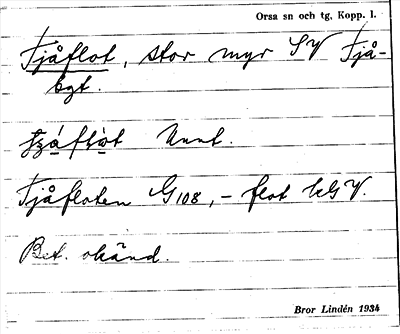 Orsa sn och tg, Kopp. l.
Tjåflot, stor myr SV Tjå-
bgt.
Uunt.
Tjåfloten G108, – flot
Bet. okänd.
Bror Lindén 1934